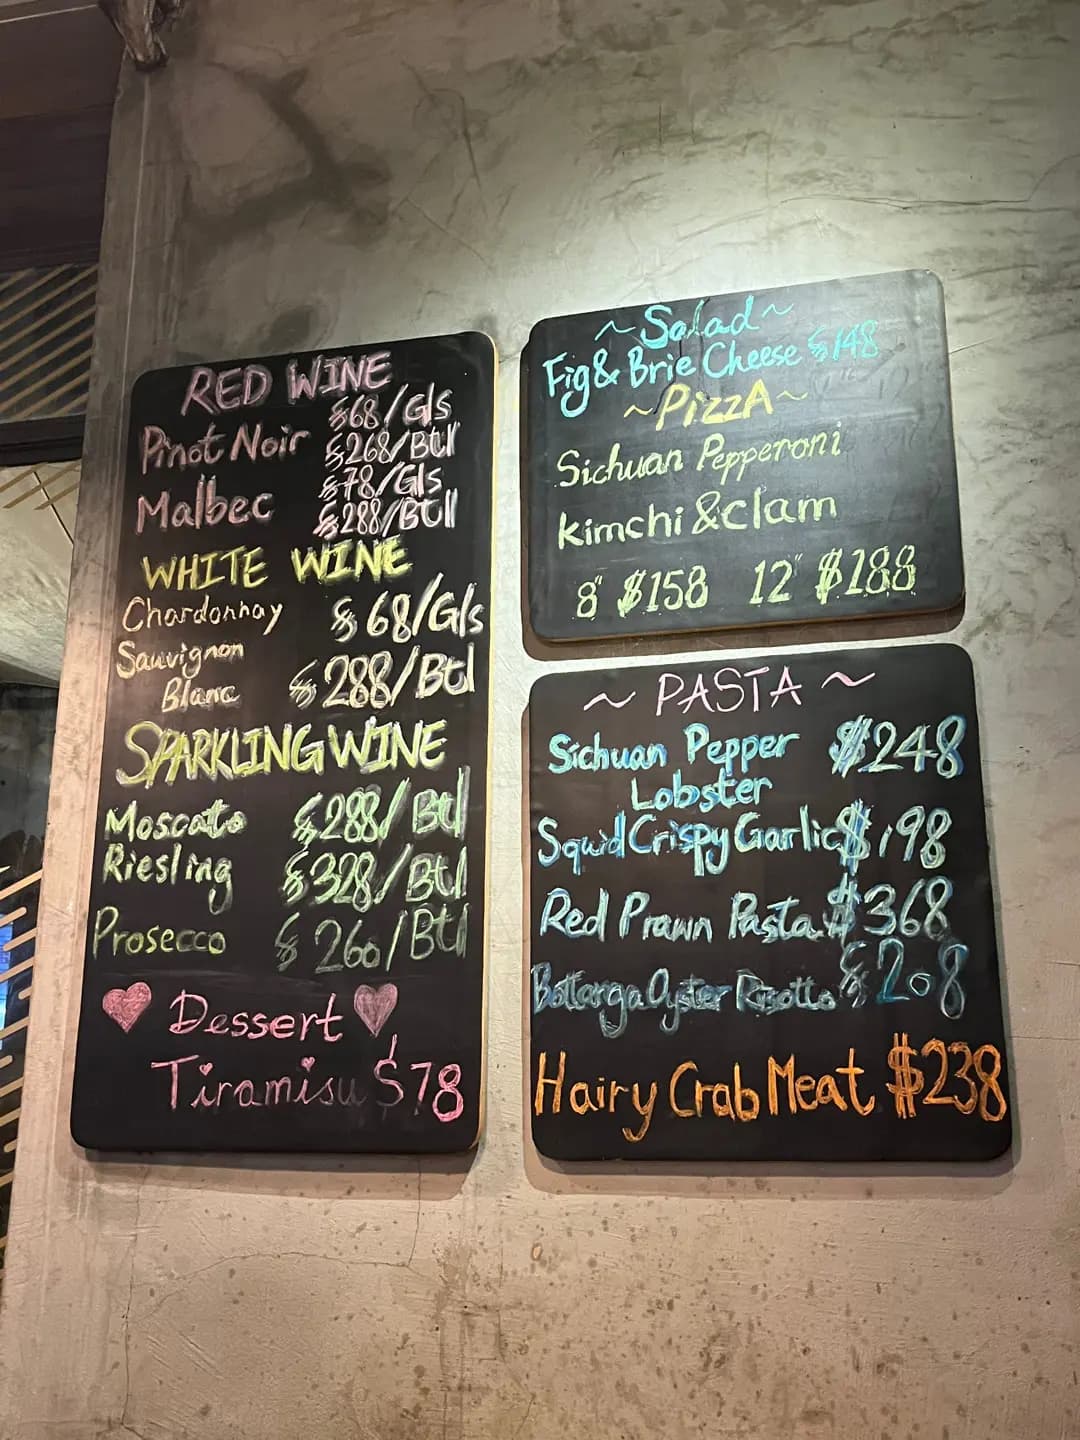 RED WINE
$68/Gls
Pinot Noir $268/Btl
$78/Gls
Malbec $288/Btl
WHITE WINE
Chardonnay $68/Gls
Sauvignon
Blanc $288/Btl
SPARKLING WINE
Moscato $288/Btl
Riesling $328/Btl
Prosecco $260/Btl
Dessert
Tiramisu $78
~Salad~
Fig & Brie Cheese $148
~PizzA~
Sichuan Pepperoni
Kimchi & Clam
8" $158 12" $188
~ PASTA ~
Sichuan Pepper $248
Lobster
Squid Crispy Garlic $198
Red Prawn Pasta $368
Bottarga Oyster Risotto $208
Hairy Crab Meat $238